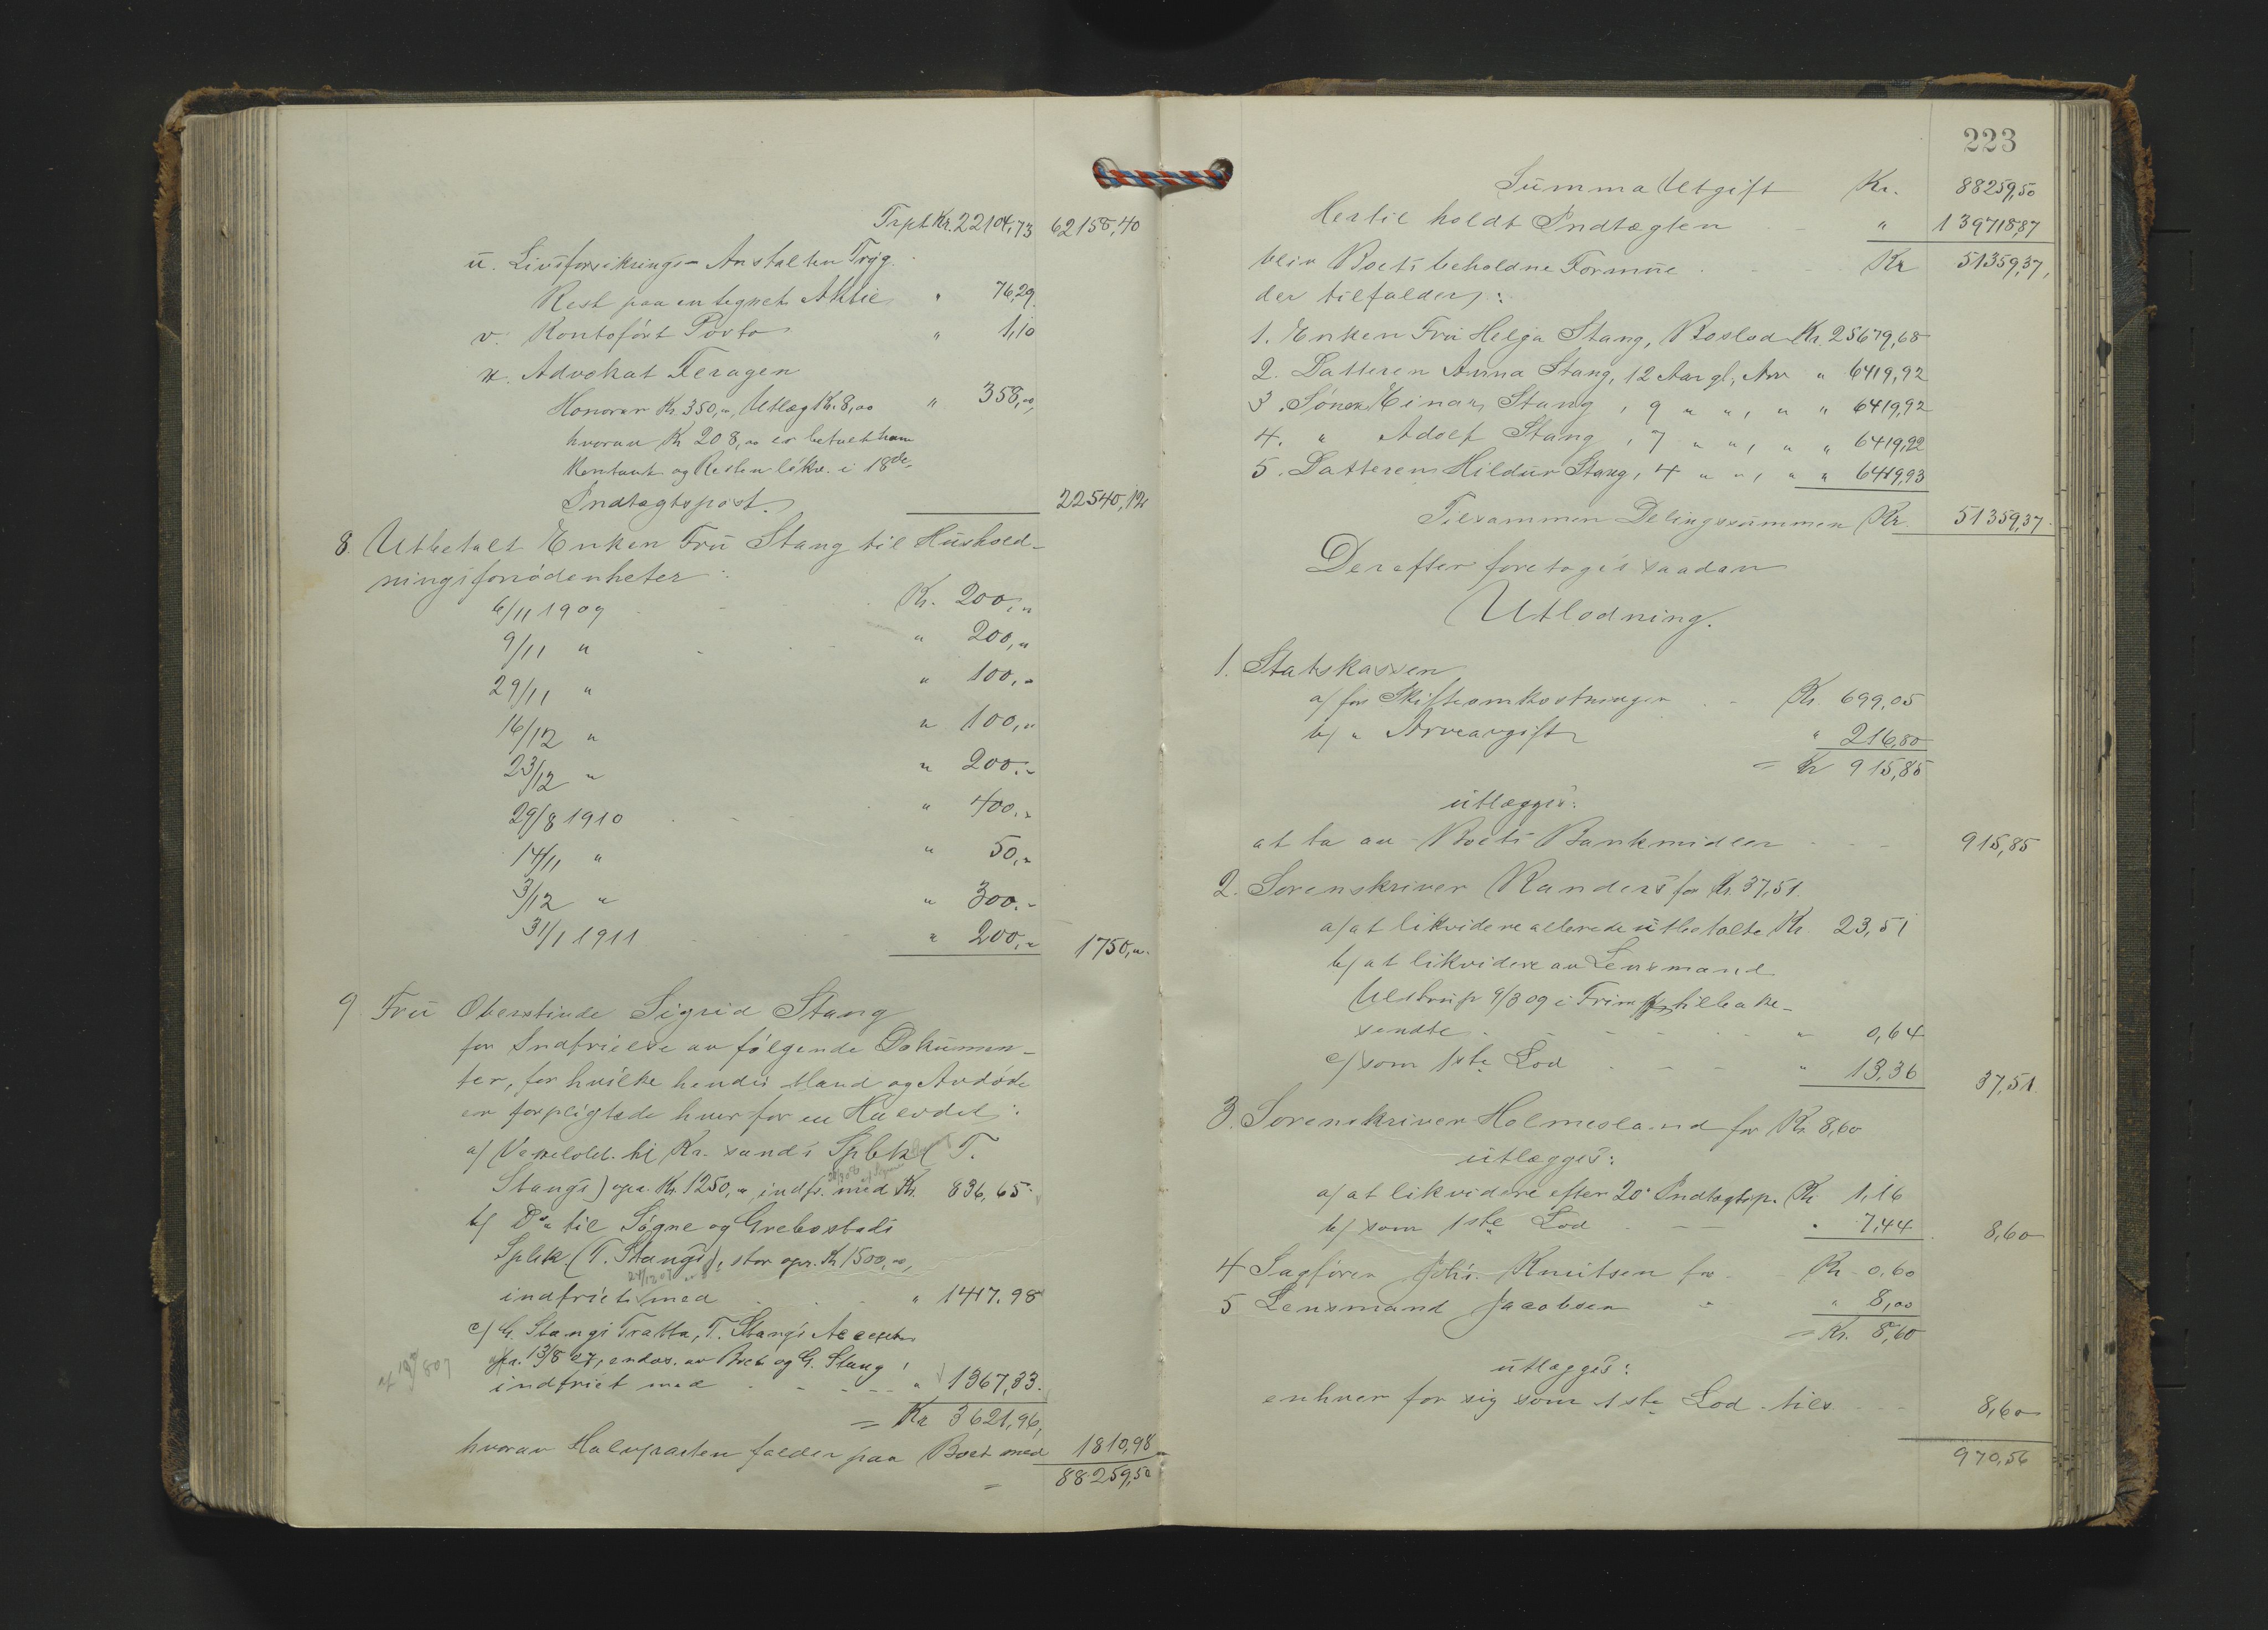 Trpt Kr. 22104,73 62158,40
u. Livsforsikrings-Anstalten Tryg.
Rest paa en tegnet Aktie " 76,29
v. Kontoført Porto " 1,10
x. Advokat Feragen
Honorar Kr. 350,00 Utlæg Kr. 8,00 " 358,00
hvorav Kr 208,00 er betalt ham
Kontant og Resten likv. i 18de
Indtægtspost. 22540,12
8. Utbetalt Enken Fru Stang til Hushold-
ningsfornødenheter:
6/11 1909 Kr. 200,"
9/11 " " 200,"
29/11 " " 100,"
16/12 " " 100,"
23/12 " " 200,"
29/8 1910 " 400,"
14/11 " " 50,"
3/12 " " 300,"
31/1 1911 " 200," 1750,"
9 Fru Oberstinde Sigrid Stang
for Indfrielse av følgende Dokumen-
ter, for hvilke hendes Mand og Avdøde
er forpligtede hver for en Halvdel:
a/ Vexelobl. til Kr. sands Spbk (T.
Stangs) opr. Kr. 1250," indfr. med Kr. 836,65
b/ Do til Søgne og Grebostads
Spbk. (T. Stangs), stor opr. Kr 1500,00,
indfriet med " 1417,98
c/ G. Stangs Tratta, T. Stangs Accept
pa. 13/8 07, endos. av Boet og G. Stang
indfriet med " 1367,33
= Kr 3621,96,
hvorav Halvparten falder paa Boet med 1810,98
= 88259,50
223
Summa Utgift Kr. 88259,50
Hertil holdt Indtægten " 139718,87
blir Boets beholdne Formue Kr 51359,37,
der tilfalder:
1. Enken Fru Helga Stang, Boslod Kr. 25679,68
2. Datteren Anna Stang, 12 Aar gl., Arv " 6419,92
3. Sønnen Einar Stang, 9 " ", " " 6419,92
4. " Adolf Stang, 7 " ", " " 6419,92
5. Datteren Hildur Stang, 4 " ", " " 6419,93
Tilsammen Delingssummen Kr. 51359,37.
Derefter foretoges saadan
Utlodning.
1. Statskassen
a/ for Skifteomkostninger Kr. 699,05
b/ " Arveavgift " 216,80
= Kr 915,85
utlægges:
at ta av Boets Bankmidler 915,85
2. Sorenskriver Randers for Kr. 37,51
a/ at likvidere allerede utbetalte Kr. 23,51
b/ at likvidere av Lensmand
Ulstrup 9/3 09 i Frim. tilbake-
sendte " 0,64
c/ som 1ste Lod " 13,36 37,51
3. Sorenskriver Holmesland for Kr. 8,60
utlægges:
a/ at likvidere efter 20. Indtægtsp. Kr 1,16
b/ som 1ste Lod " 7,44 8,60
4 Sagfører Johs. Knutsen for Kr 0,60
5 Lensmand Jacobsen " " 8,00
= Kr. 8,60
utlægges:
enhver for sig som 1ste Lod tils. 8,60
970,56